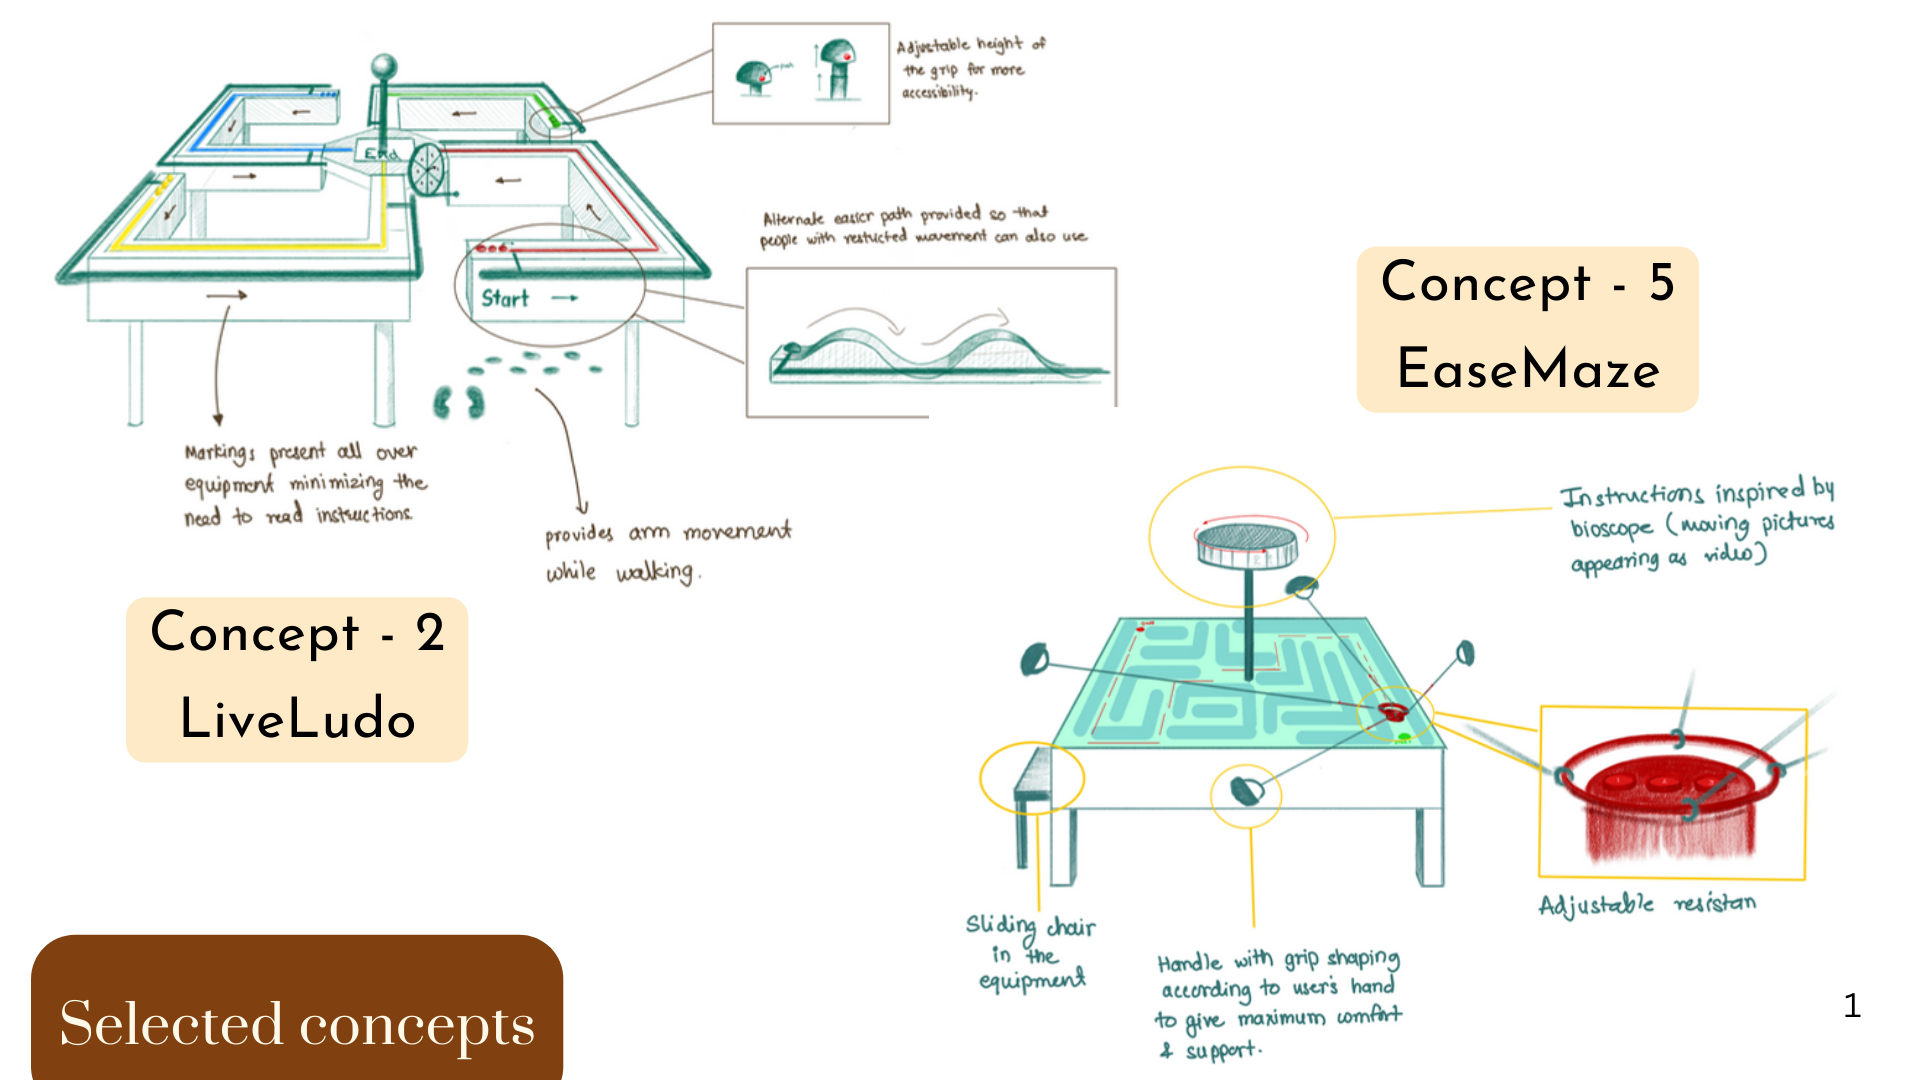 Adjustable height of
the grip for more
accessibility.
path
End
Alternate easier path provided so that
people with restucted movement can also use
Start
Markings present all over
equipment minimizing the
need to read instructions.
provides arm movement
while walking.
Concept - 2
LiveLudo
Concept - 5
EaseMaze
Instructions inspired by
bioscope (moving pictures
appearing as video)
Adjustable resistan
Sliding chair
in the
equipment
Handle with grip shaping
according to user's hand
to give maximum comfort
& support.
Selected concepts
1